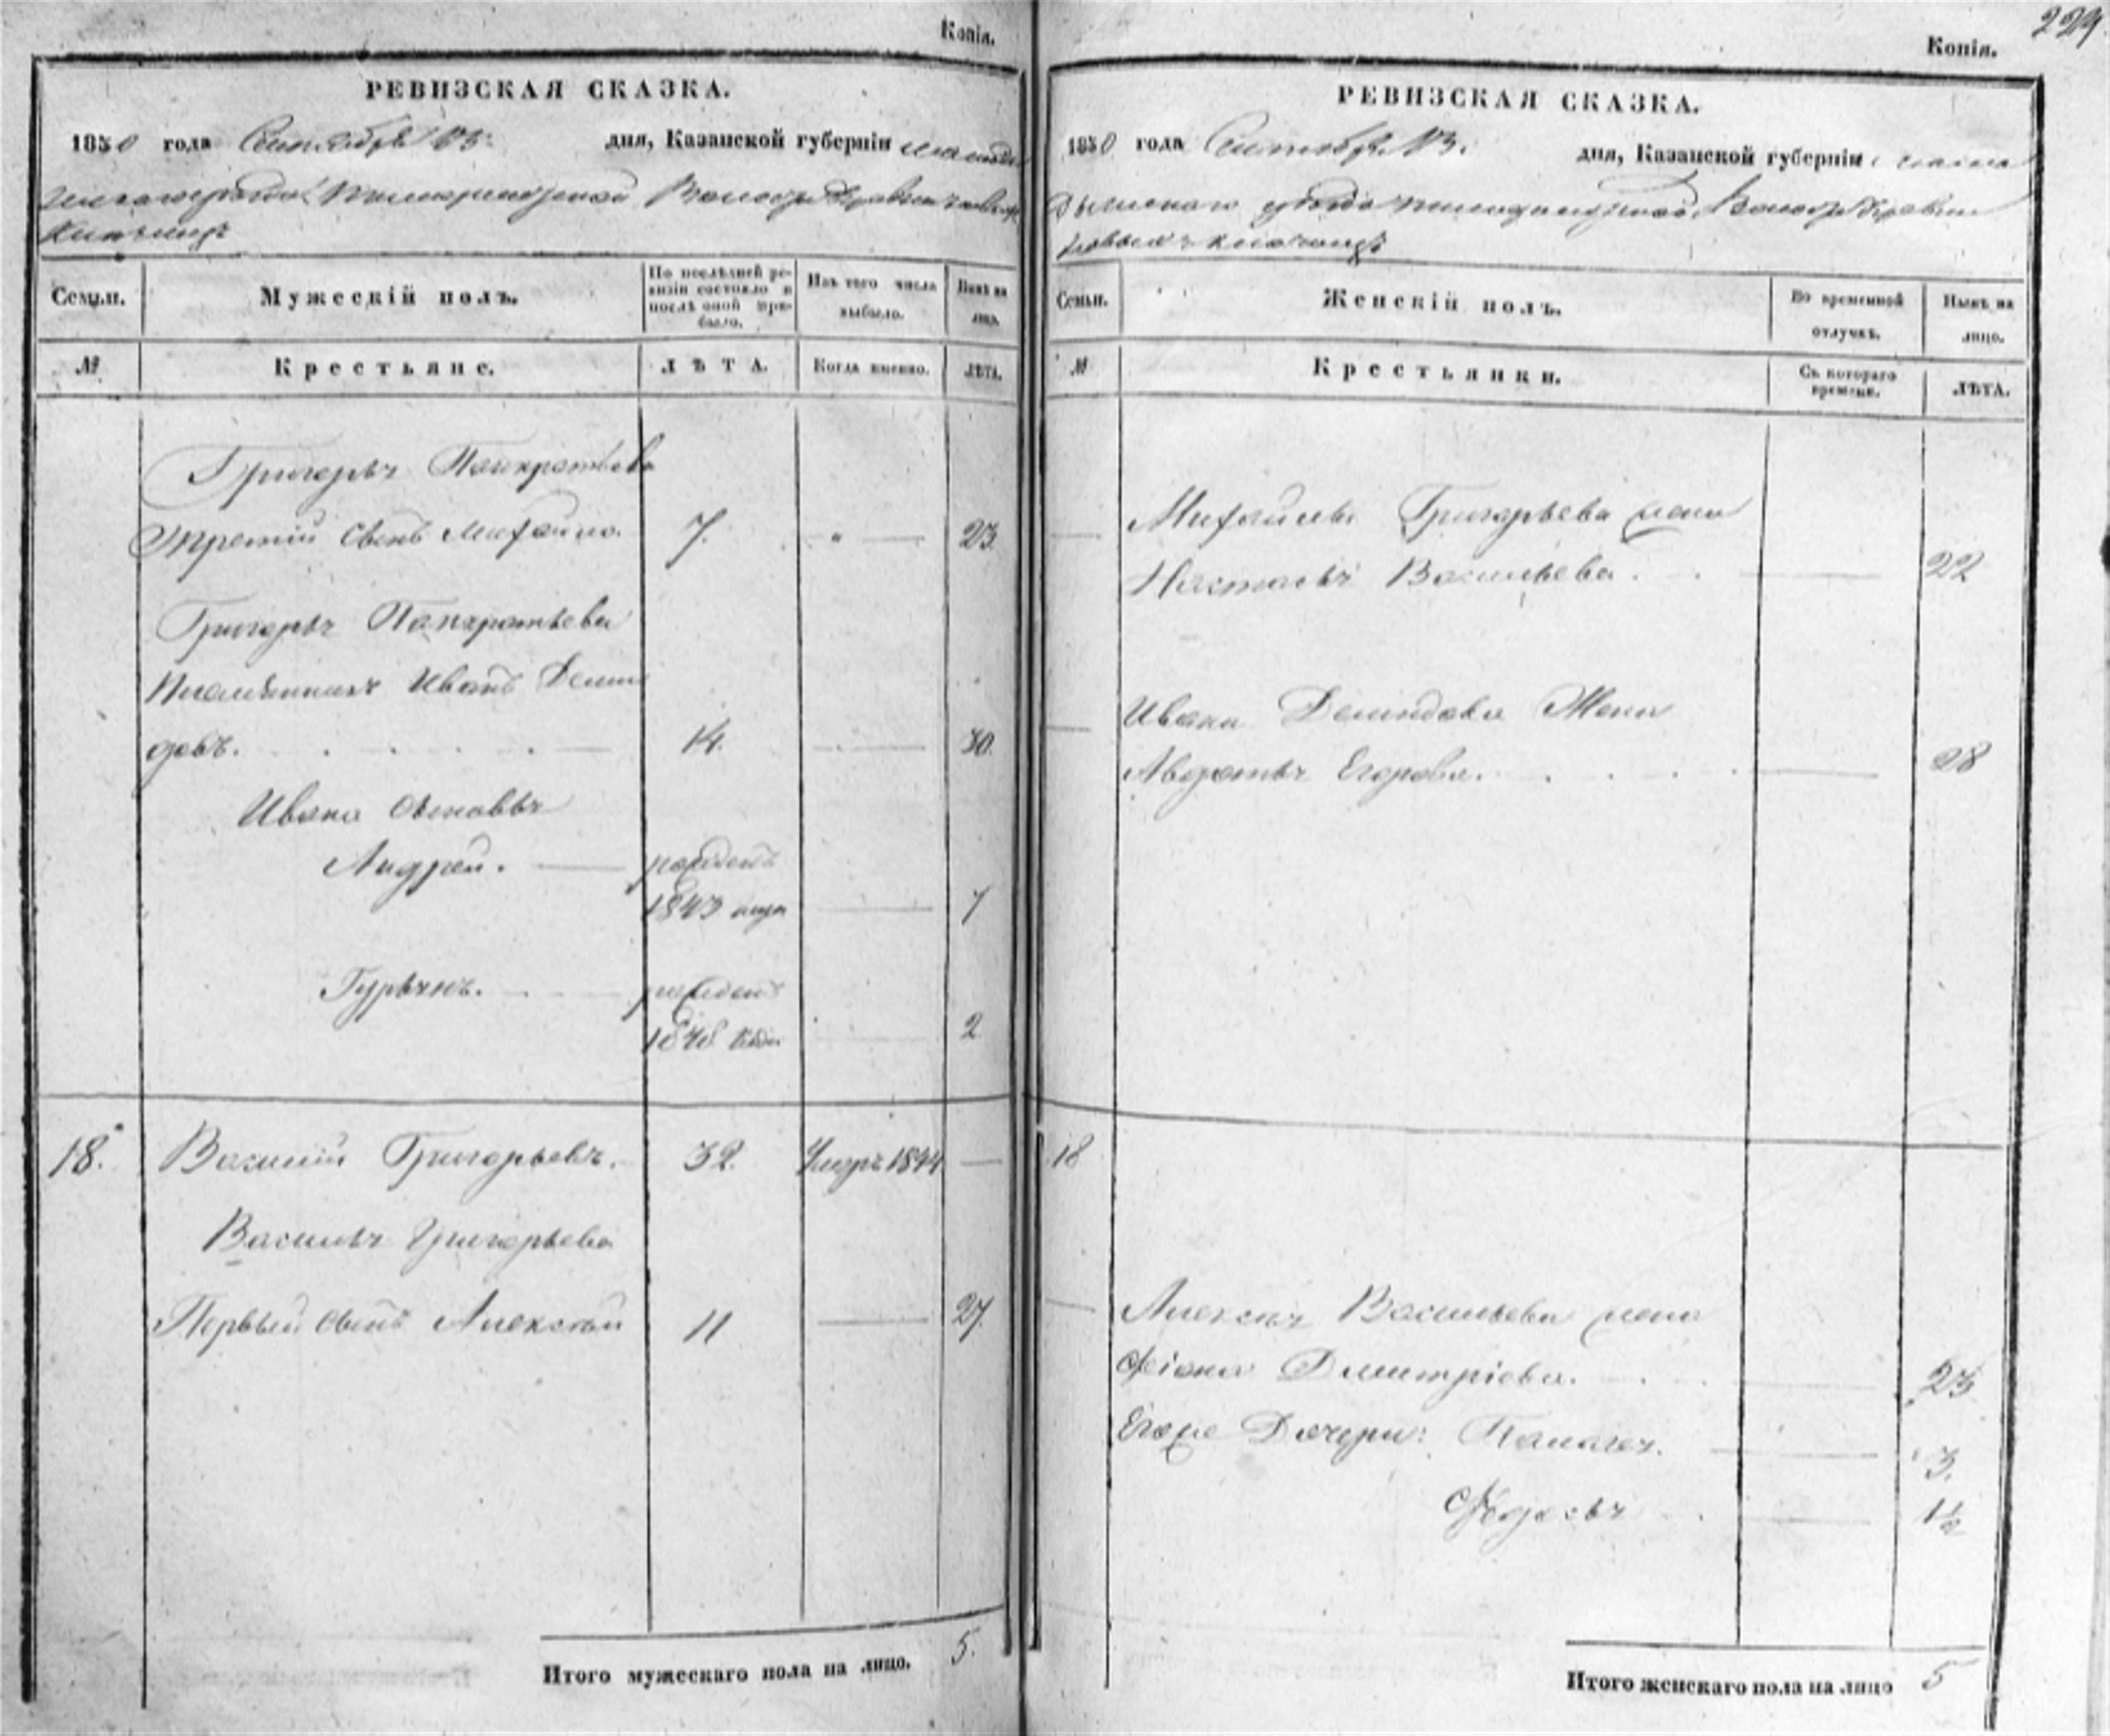 Копія.
РЕВИЗСКАЯ СКАЗКА.
1850 года Сентября 13. дня, Казанской губерніи
Семьи.
Мужескій полъ.
По послѣдней ревизіи состояло и послѣ оной прибыло.
Изъ того числа выбыло.
Нынѣ на лицо.
№
Крестьяне.
ЛѢТА.
Когда именно.
ЛѢТА.
Григорья Панкратьева
третій сынъ Михайло. 7. 23.
Григорья Панкратьева
Племянникъ Иванъ Деми
довъ. 14. 30.
Ивана сыновья
Андрей. рожденъ
1843 7
Гурьянъ. рожденъ
1848 2
18. Василий Григорьевъ. 32. Умеръ 1844
Василья Григорьева
Первый сынъ Алексей 11 27.
Итого мужескаго пола на лицо. 5.
229.
Копія.
РЕВИЗСКАЯ СКАЗКА.
1850 года Сентября 13. дня, Казанской губерніи
Семьи.
Женскій полъ.
Во временной отлучкѣ.
Нынѣ на лицо.
№
Крестьянки.
Съ котораго времени.
ЛѢТА.
Михайлы Григорьева жена
Настасья Васильева. 22
Ивана Демидова Жена
Авдотья Егорова. 28
18
Алексея Васильева жена
Дмитріева. 23
Егоже Дочери: Палагея. 3.
Федосья 1½
Итого женскаго пола на лицо 5